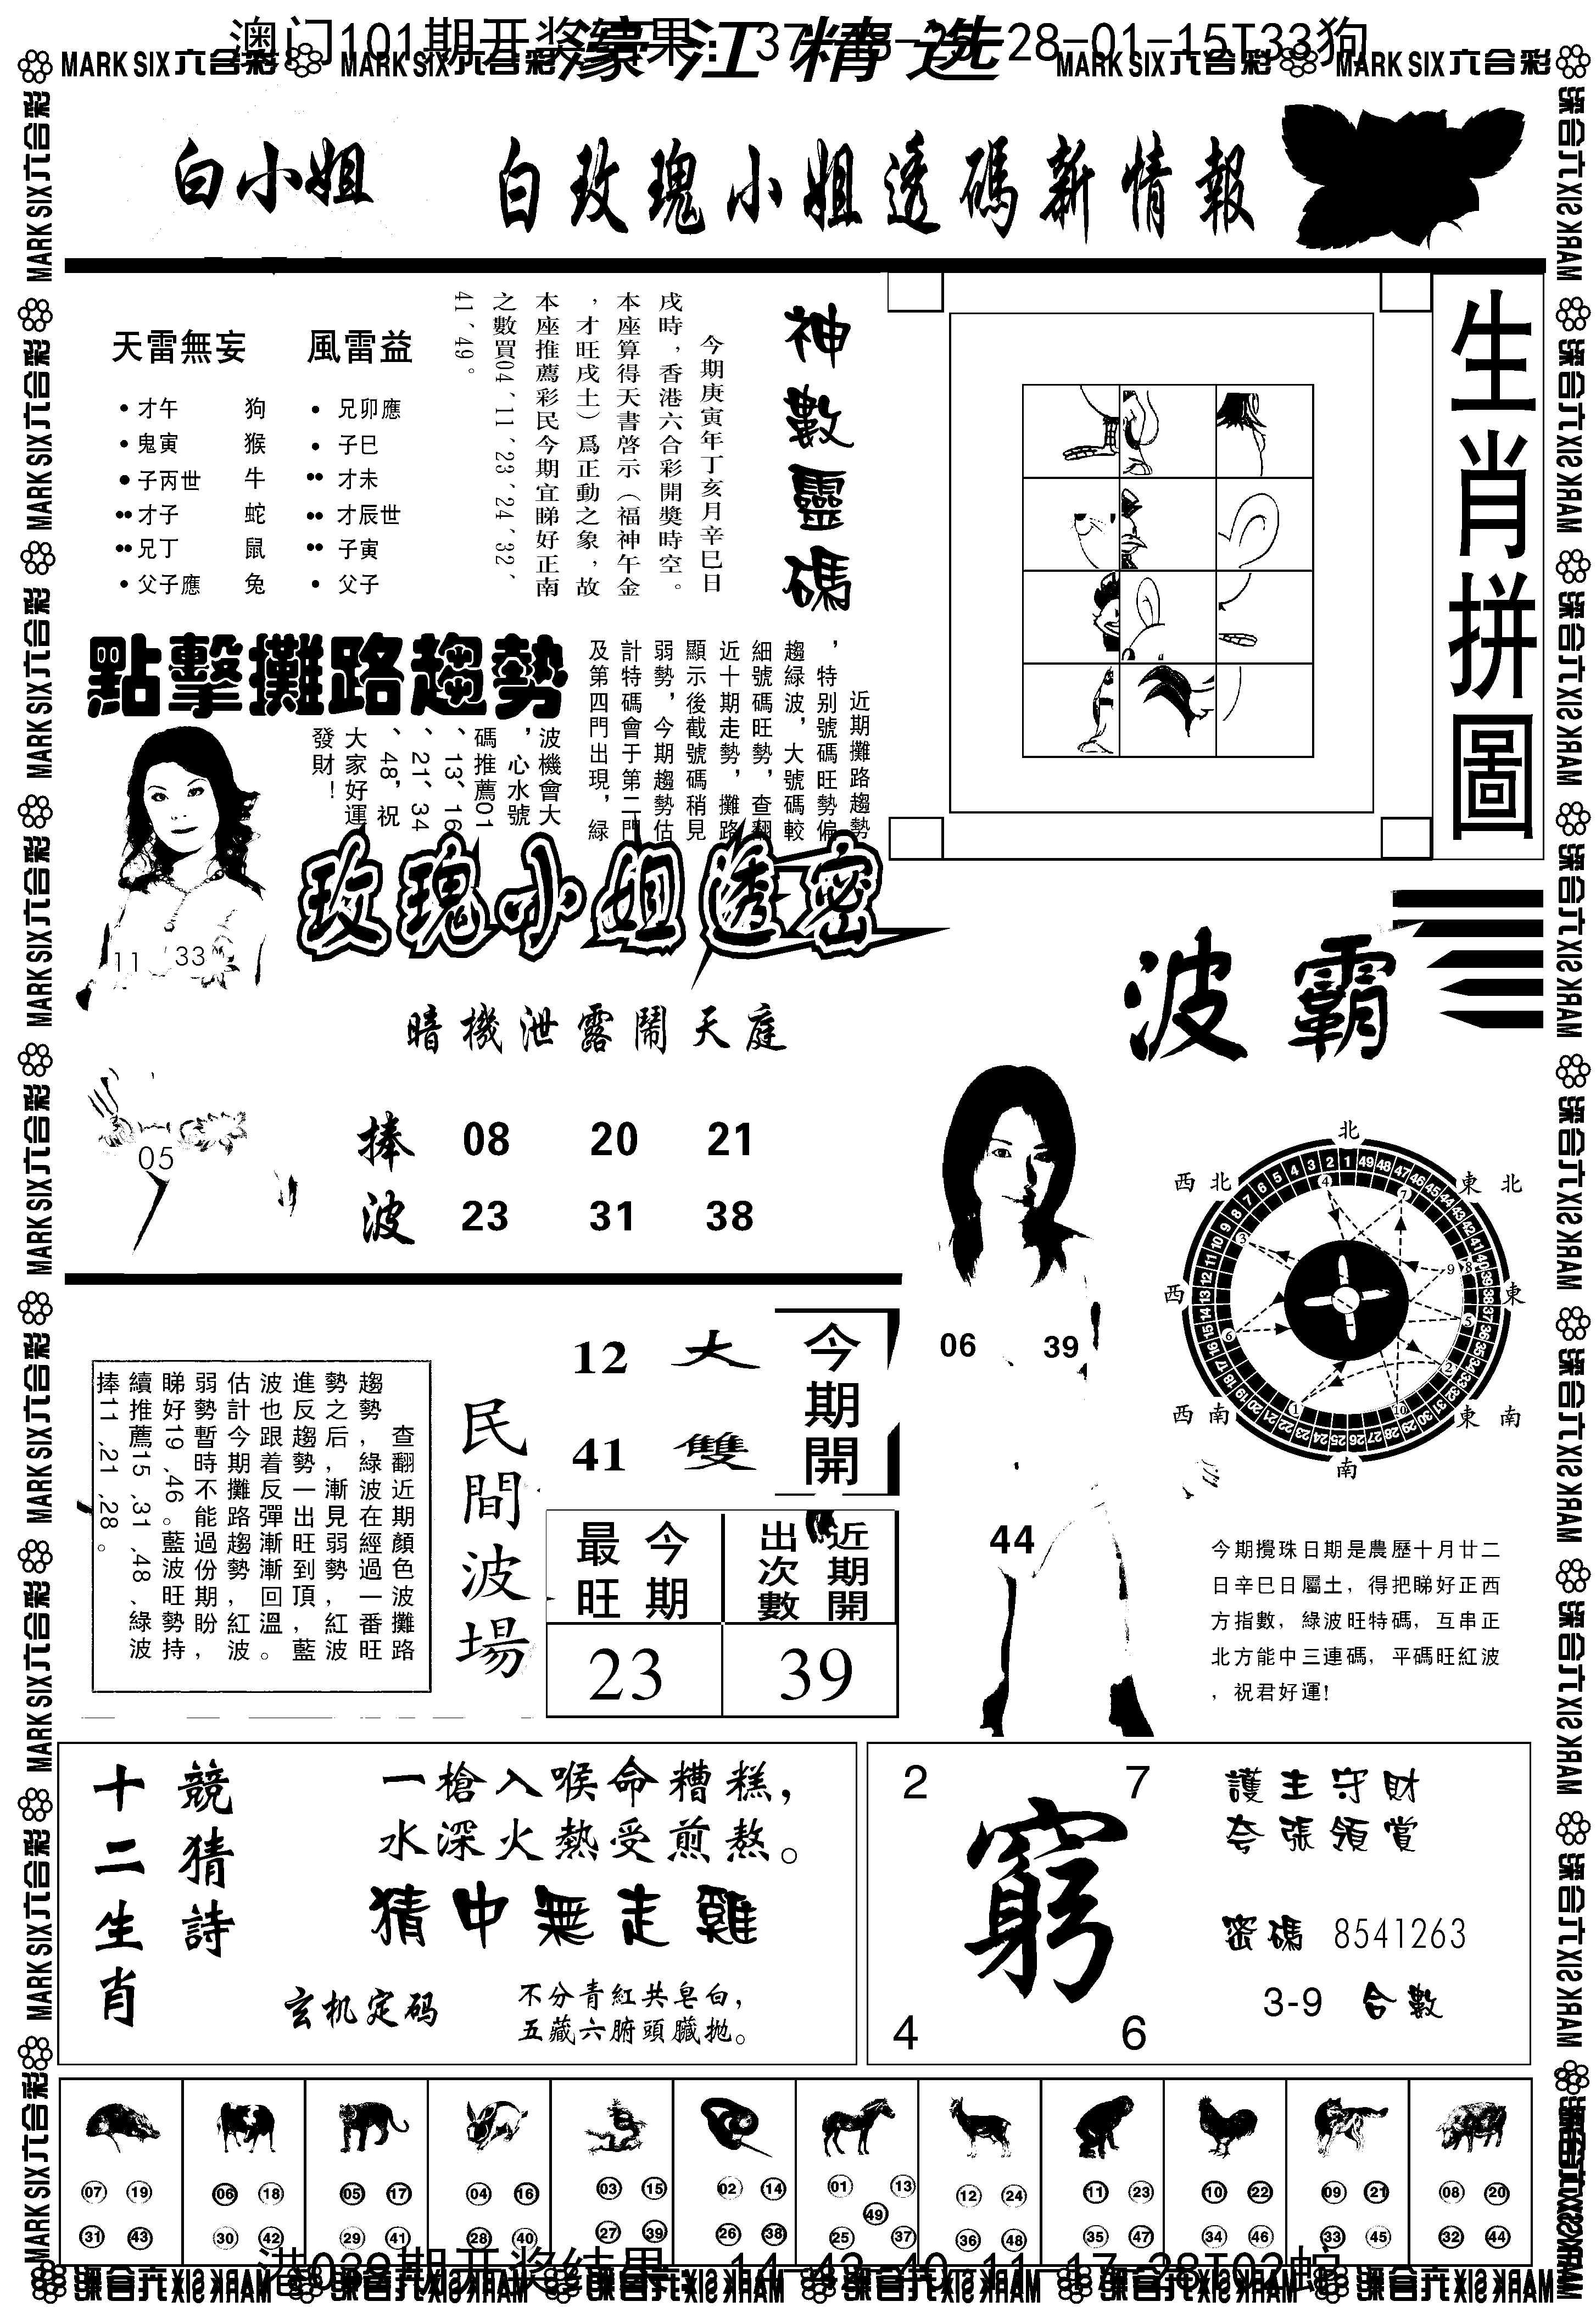 濠江精选
MARK SIX 六合彩
白小姐
白玫瑰小姐透碼新情報
天雷無妄
風雷益
・才午 狗 ・兄卯應
・鬼寅 猴 ・子巳
・子丙世 牛 ・・才未
・・才子 蛇 ・・才辰世
・・兄丁 鼠 ・・子寅
・父子應 兔 ・父子
神數靈碼
今期庚寅年丁亥月辛巳日
戌時，香港六合彩開獎時空。
本座算得天書啓示（福神午金
，才旺戌土）爲正動之象，故
本座推薦彩民今期宜睇好正南
之數買04、11、23、24、32、
41、49。
生肖拼圖
點擊攤路趨勢
近期攤路趨勢
，特别號碼旺勢偏
趨緑波，大號碼較
細號碼旺勢，查翻
近十期走勢，攤路
顯示後截號碼稍見
弱勢，今期趨勢估
計特碼會于第二門
及第四門出現，緑
波機會大
，心水號
碼推薦01
、13、16
、21、34
、48，祝
大家好運
發財！
11 33
玫瑰小姐透密
暗機泄露鬧天庭
05
捧 08 20 21
波 23 31 38
波霸
06 39
44
北
東北
東
東南
南
西南
西
西北
今期攪珠日期是農歷十月廿二
日辛巳日屬土，得把睇好正西
方指數，綠波旺特碼，互串正
北方能中三連碼，平碼旺紅波
，祝君好運!
民間波場
查翻近期顏色波攤路
趨勢，綠波在經過一番旺
勢之后，漸見弱勢，紅波
進反趨勢一出旺到頂，藍
波也跟着反彈漸漸回溫。
估計今期攤路趨勢，紅波
弱勢暫時不能過份期盼，
睇好19、46。藍波旺勢持
續推薦15、31、48、綠波
捧11、21、28。
今期開
大 12
雙 41
今期最旺
近期開出次數
23 39
十二生肖
競猜詩
一槍入喉命糟糕，
水深火熱受煎熬。
猜中無走雞
玄机定码
不分青紅共皂白，
五藏六腑頭臟拋。
2 7
窮
4 6
護主守財
夸張領賞
密碼 8541263
3-9 合數
07 19 31 43
06 18 30 42
05 17 29 41
04 16 28 40
03 15 27 39
02 14 26 38
01 13 49 25 37
12 24 36 48
11 23 35 47
10 22 34 46
09 21 33 45
08 20 32 44